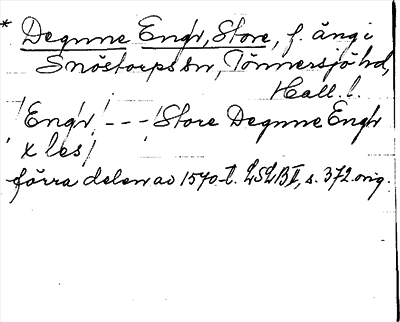 * Degnne Engr, Store, f. äng i
Snöstorps sn, Tönnersjö hd,
Hall. l.
/Engr/ --- /Store Degnne Engr
x les/
förra delen av 1570-t. LSLB II, s. 372. orig.